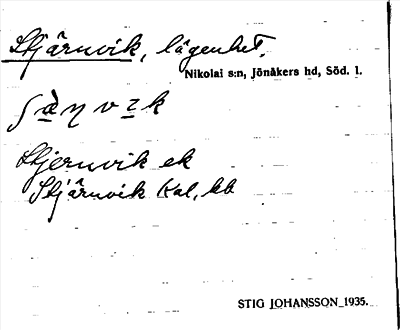 Stjärnvik, lägenhet.
Nikolai s:n, Jönåkers hd, Söd. l.
Stjernvik ek
Stjärnvik Kal, kb
STIG JOHANSSON 1935.